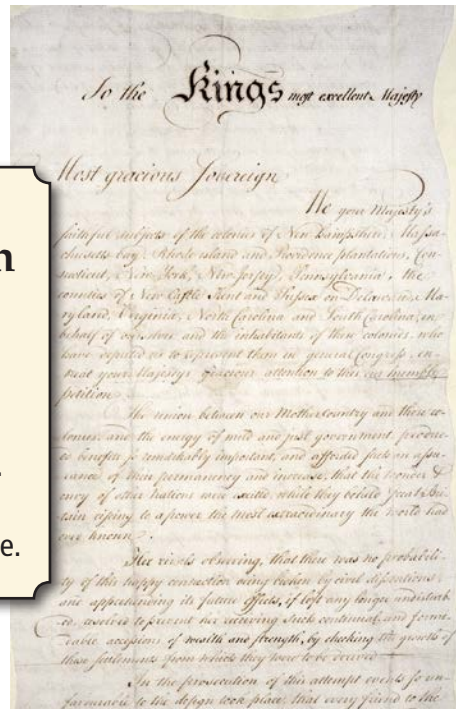 To the Kings most excellent Majesty
Most gracious Sovereign
We your Majesty's
faithful subjects of the colonies of New Hampshire, Massa-
chusetts bay, Rhode island and Providence plantations, Con-
necticut, New York, New Jersey, Pennsylvania, the
counties of New Castle Kent and Sussex on Delaware, Ma-
ryland, Virginia, North Carolina and South Carolina, in
behalf of ourselves and the inhabitants of these colonies, who
have deputed us to represent them in general Congress, en-
treat your Majestys gracious attention to this our humble
petition.
The union between our Mother Country and these co-
lonies, and the energy of mild and just government, produc-
ed benefits so remarkably important, and afforded such an assu-
rance of their permanency and increase, that the wonder &
envy of other Nations were excited, while they beheld Great Bri-
tain riseing to a power the most extraordinary the world had
ever known.
Her rivals observing, that there was no probabili-
ty of this happy connection being broken by civil dissentions,
and apprehending its future effects, if left any longer undisturb-
ed, resolved to prevent her receiving such continual and formi-
dable accessions of wealth and strength, by checking the growth of
these settlements from which they were to be derived.
In the prosecution of this attempt events so un-
favourable to the design took place, that every friend to the
n
e.